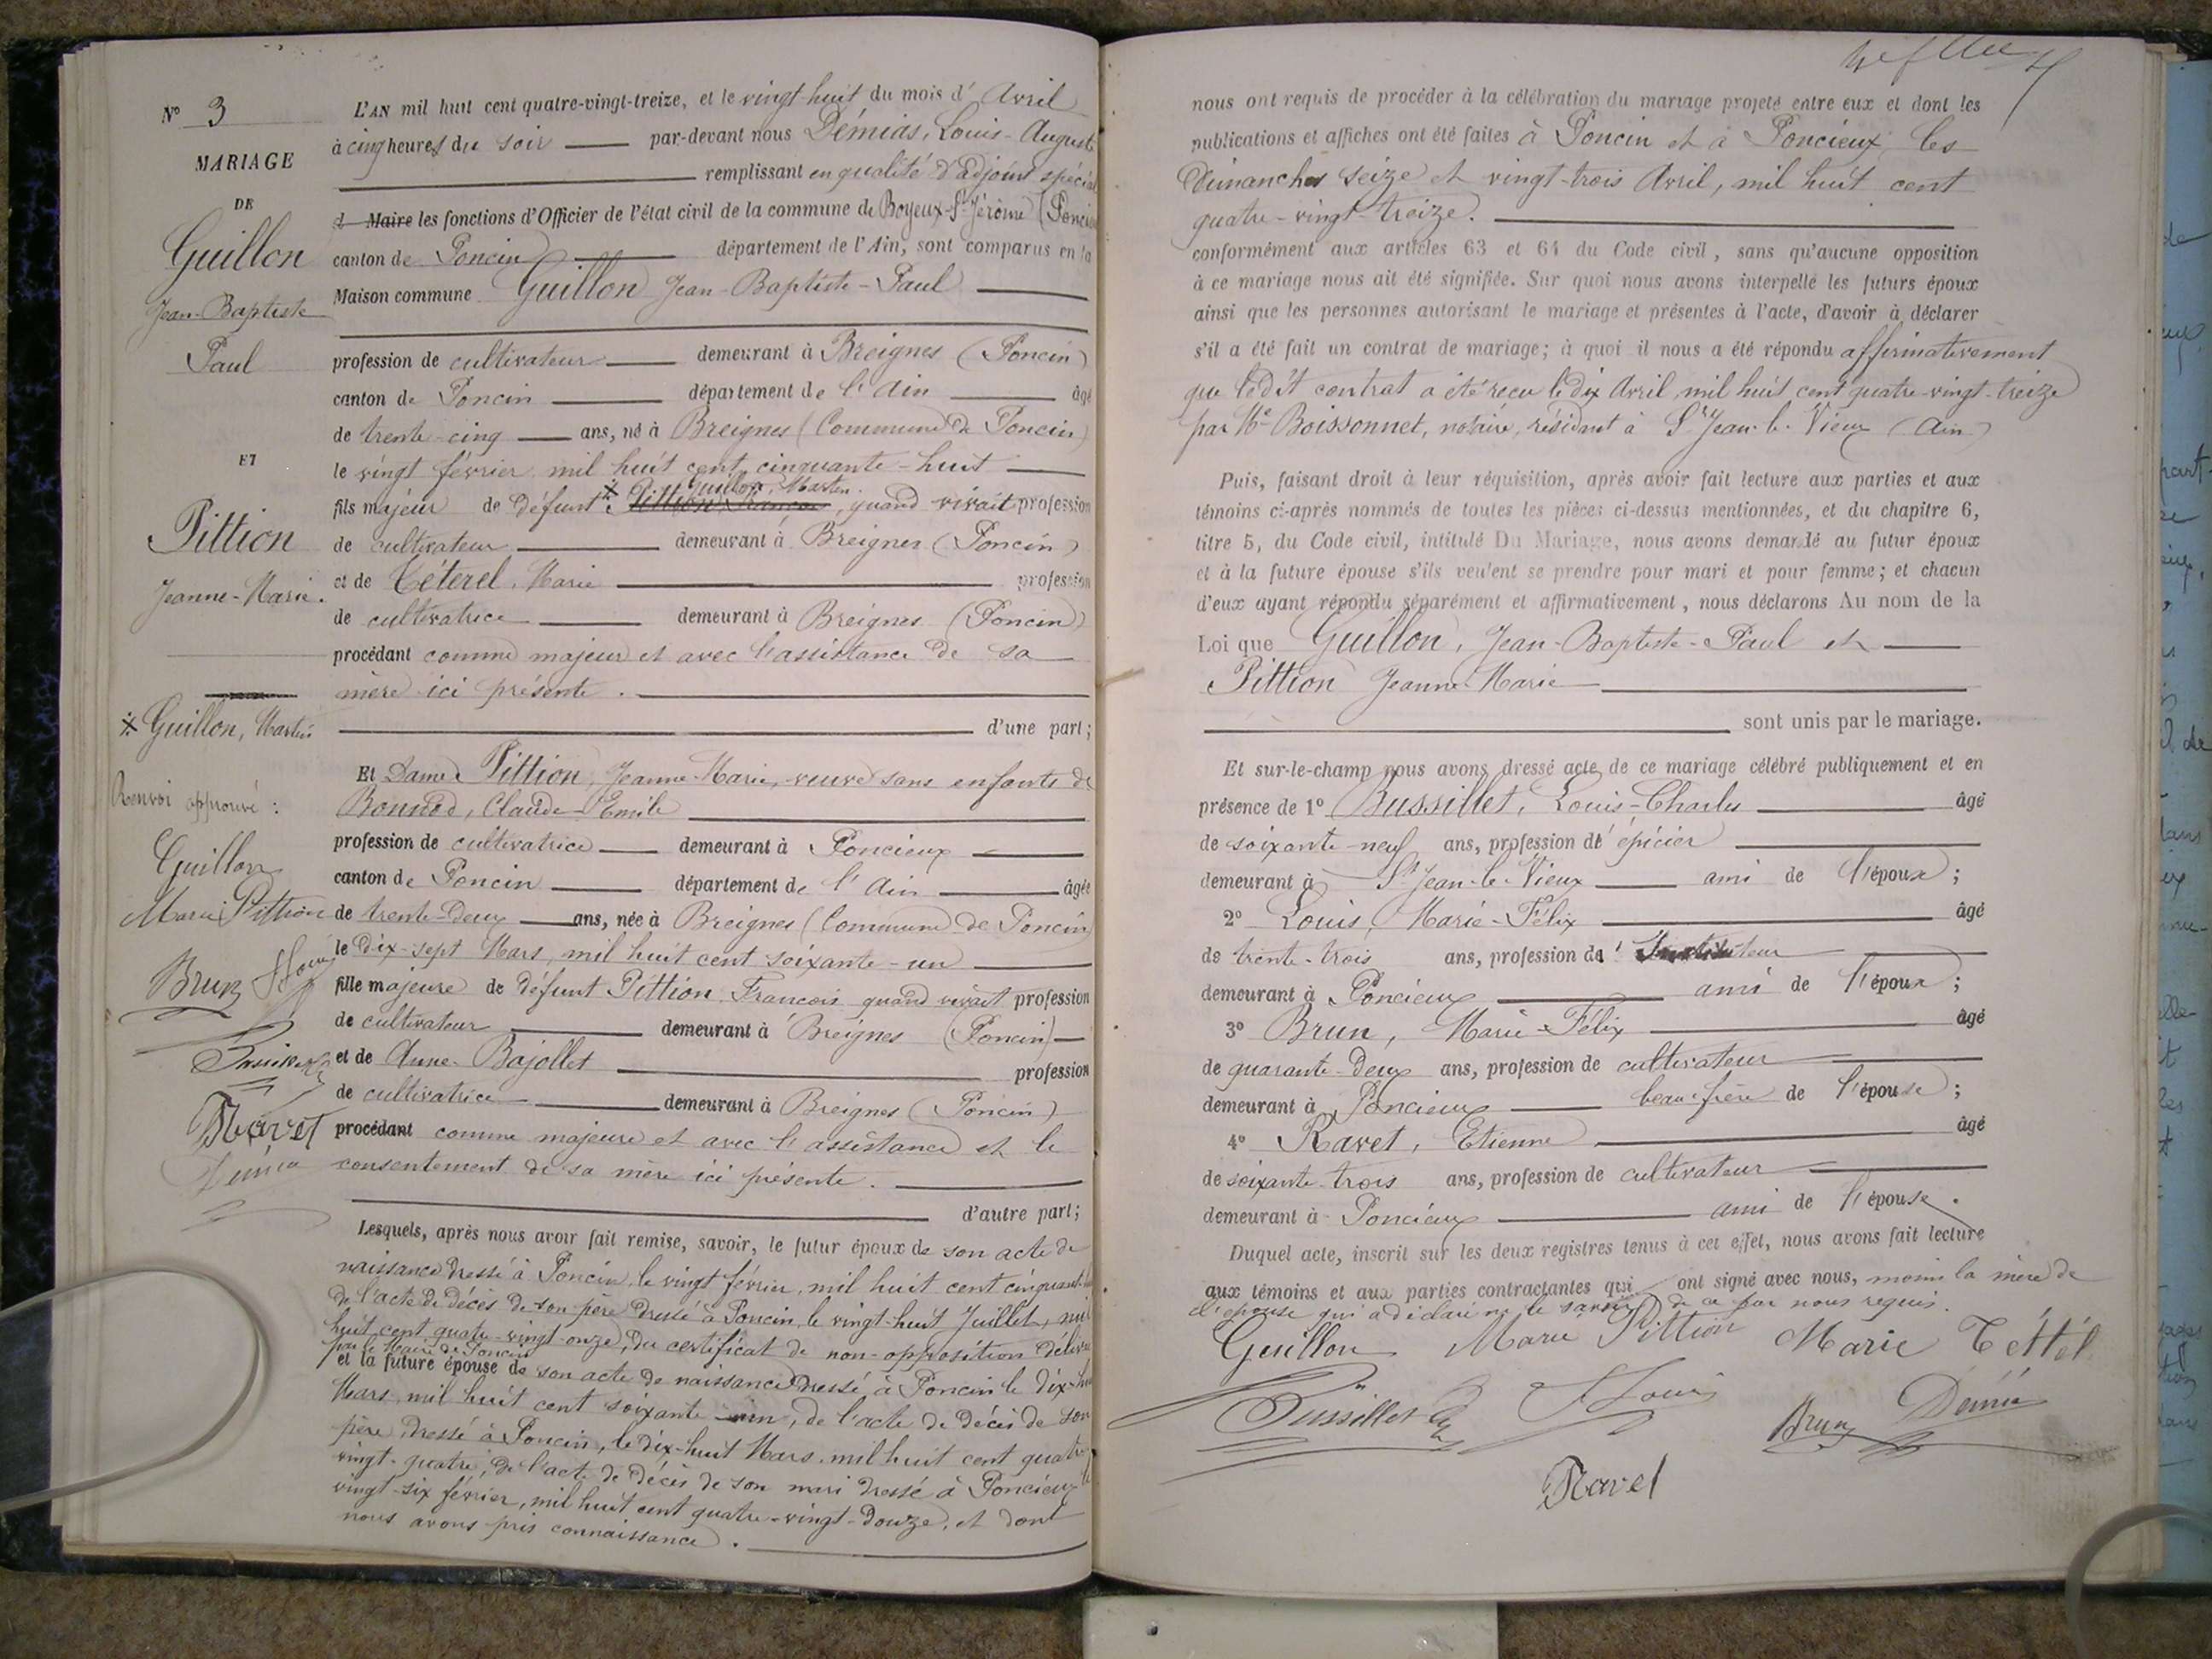 N° 3
MARIAGE
DE
Guillon
Jean-Baptiste
Paul
ET
Pittion
Jeanne-Marie.
※ Guillon, Martin
Renvoi approuvé :
Guillon
Marie Pittion
Brun F Louis
Ravet
L'AN mil huit cent quatre-vingt-treize, et le vingt-huit du mois d'Avril
à cinq heures du soir par-devant nous Démias, Louis-Auguste
remplissant en qualité d'adjoint spécial
d Maire les fonctions d'Officier de l'état civil de la commune de Boyeux-St-Jérôme (Poncieux
canton de Poncin département de l'Ain, sont comparus en la
Maison commune Guillon Jean-Baptiste-Paul
profession de cultivateur demeurant à Breignes (Poncin)
canton de Poncin département de l'Ain âgé
de trente-cinq ans, né à Breignes (Commune de Poncin)
le vingt février mil huit cent cinquante-huit
Guillon, Martin.
fils majeur de défunt ※ Pittion François, quand vivait profession
de cultivateur demeurant à Breignes (Poncin)
et de Téterel, Marie profession
de cultivatrice demeurant à Breignes (Poncin)
procédant comme majeur et avec l'assistance de sa
mère ici présente.
d'une part;
Et Dame Pittion, Jeanne-Marie, veuve sans enfants de
Bonnod, Claude-Emile
profession de cultivatrice demeurant à Poncieux
canton de Poncin département de l'Ain âgée
de trente-deux ans, née à Breignes (Commune de Poncin)
le dix-sept Mars, mil huit cent soixante-un
fille majeure de défunt Pittion François quand vivait profession
de cultivateur demeurant à Breignes (Poncin)
et de Anne Bajollet profession
de cultivatrice demeurant à Breignes (Poncin)
procédant comme majeure et avec l'assistance et le
consentement de sa mère ici présente.
d'autre part;
Lesquels, après nous avoir fait remise, savoir, le futur époux de son acte de
naissance dressé à Poncin, le vingt février, mil huit cent cinquante-huit
de l'acte de décès de son père dressé à Poncin, le vingt-huit Juillet, mil
huit cent quatre-vingt-onze, du certificat de non-opposition délivré
par le Maire de Poncin
et la future épouse de son acte de naissance dressé à Poncin le dix-huit
Mars, mil huit cent soixante-un, de l'acte de décès de son
père dressé à Poncin, le dix-huit Mars, mil huit cent quatre
vingt-quatre, de l'acte de décès de son mari dressé à Poncieux le
vingt-six février, mil huit cent quatre-vingt-douze, et dont
nous avons pris connaissance.
nous ont requis de procéder à la célébration du mariage projeté entre eux et dont les
publications et affiches ont été faites à Poncin et à Poncieux, les
Dimanches seize et vingt-trois Avril, mil huit cent
quatre-vingt-treize.
conformément aux articles 63 et 64 du Code civil, sans qu'aucune opposition
à ce mariage nous ait été signifiée. Sur quoi nous avons interpellé les futurs époux
ainsi que les personnes autorisant le mariage et présentes à l'acte, d'avoir à déclarer
s'il a été fait un contrat de mariage; à quoi il nous a été répondu affirmativement
que ledit contrat a été reçu le dix Avril, mil huit cent quatre-vingt-treize
par Me Boissonnet, notaire, résidant à St Jean-le-Vieux (Ain)
Puis, faisant droit à leur réquisition, après avoir fait lecture aux parties et aux
témoins ci-après nommés de toutes les pièces ci-dessus mentionnées, et du chapitre 6,
titre 5, du Code civil, intitulé Du Mariage, nous avons demandé au futur époux
et à la future épouse s'ils veulent se prendre pour mari et pour femme; et chacun
d'eux ayant répondu séparément et affirmativement, nous déclarons Au nom de la
Loi que Guillon, Jean-Baptiste-Paul et
Pittion Jeanne-Marie
sont unis par le mariage.
Et sur-le-champ nous avons dressé acte de ce mariage célébré publiquement et en
présence de 1° Bussillet, Louis-Charles âgé
de soixante-neuf ans, profession d'épicier
demeurant à St Jean-le-Vieux ami de l'époux;
2° Louis, Marie-Félix âgé
de trente-trois ans, profession d'Instituteur
demeurant à Poncieux ami de l'époux;
3° Brun, Marie-Félix âgé
de quarante-deux ans, profession de cultivateur
demeurant à Poncieux beau-frère de l'épouse;
4° Ravet, Etienne âgé
de soixante-trois ans, profession de cultivateur
demeurant à Poncieux ami de l'épouse.
Duquel acte, inscrit sur les deux registres tenus à cet effet, nous avons fait lecture
aux témoins et aux parties contractantes qui ont signé avec nous, moins la mère de
l'épouse qui a déclaré ne le savoir de ce par nous requis.
Guillon Marie Pittion Marie Téttél
Bussillet F Louis Brun Démia
Ravet